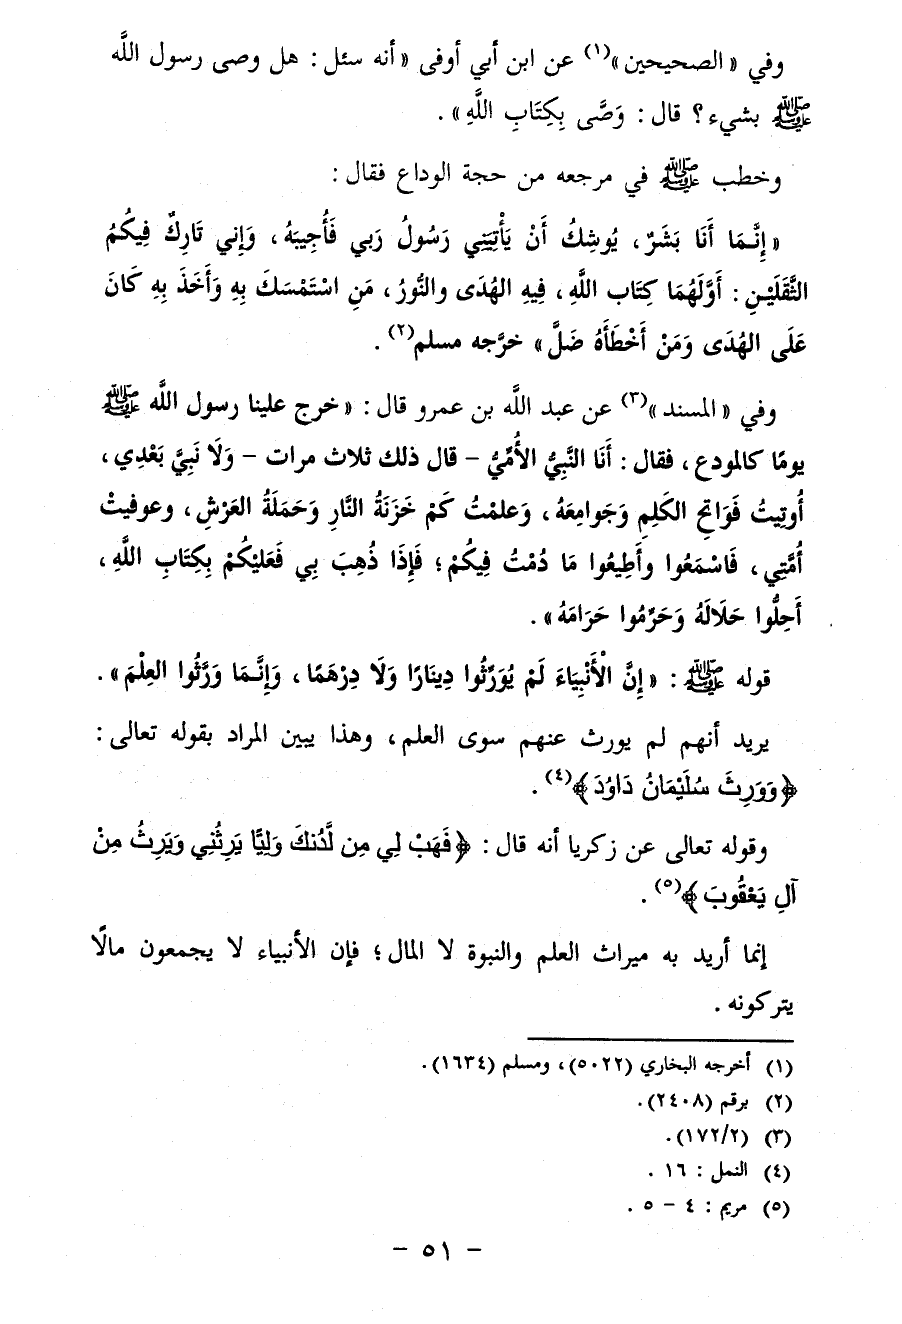 وفي « الصحيحين »(١) عن ابن أبي أوفى « أنه سئل : هل وصى رسول اللَّه
ﷺ بشيء ؟ قال : وَصَّى بِكِتَابِ اللَّهِ » .
وخطب ﷺ في مرجعه من حجة الوداع فقال :
« إِنَّمَا أَنَا بَشَرٌ ، يُوشِكُ أَنْ يَأْتِيَنِي رَسُولُ رَبي فَأُجِيبَهُ ، وَإِني تَارِكٌ فِيكُمُ
الثَّقَلَيْنِ : أَوَّلَهُمَا كِتَاب اللَّهِ ، فِيهِ الهُدَى والنُّورُ ، مَنِ اسْتَمْسَكَ بِهِ وَأَخَذَ بِهِ كَانَ
عَلَى الهُدَى وَمَنْ أَخْطَأَهُ ضَلَّ » خرَّجه مسلم(٢) .
وفي « المسند »(٣) عن عبد اللَّه بن عمرو قال : « خرج علينا رسول اللَّه ﷺ
يومًا كالمودع ، فقال : أَنَا النَّبِيُّ الأُمِّيُّ – قال ذلك ثلاث مرات – وَلَا نَبِيَّ بَعْدِي ،
أُوتِيتُ فَوَاتِحَ الكَلِمِ وَجَوامِعَهُ ، وَعلمْتُ كَمْ خَزَنَةُ النَّارِ وَحَمَلَةُ العَرْشِ ، وعوفيتْ
أُمَّتِي ، فَاسْمَعُوا وأَطِيعُوا مَا دُمْتُ فِيكُمْ ؛ فَإِذَا ذُهِبَ بِي فَعَلَيْكُمْ بِكِتَابِ اللَّهِ ،
أَحِلُّوا حَلَالَهُ وَحَرِّمُوا حَرَامَهُ » .
قوله ﷺ : « إِنَّ الْأَنْبِيَاءَ لَمْ يُوَرِّثُوا دِينَارًا وَلَا دِرْهَمًا ، وَإِنَّمَا وَرَّثُوا العِلْمَ » .
يريد أنهم لم يورث عنهم سوى العلم ، وهذا يبين المراد بقوله تعالى :
﴿ وَوَرِثَ سُلَيْمَانُ دَاوُدَ ﴾(٤) .
وقوله تعالى عن زكريا أنه قال : ﴿ فَهَبْ لِي مِن لَّدُنكَ وَلِيًّا يَرِثُنِي وَيَرِثُ مِنْ
آلِ يَعْقُوبَ ﴾(٥) .
إنما أريد به ميراث العلم والنبوة لا المال ؛ فإن الأنبياء لا يجمعون مالًا
يتركونه .
(١) أخرجه البخاري (٥٠٢٢) ، ومسلم (١٦٣٤) .
(٢) برقم (٢٤٠٨) .
(٣) (١٧٢/٢) .
(٤) النمل : ١٦ .
(٥) مريم : ٤ – ٥ .
– ٥١ –